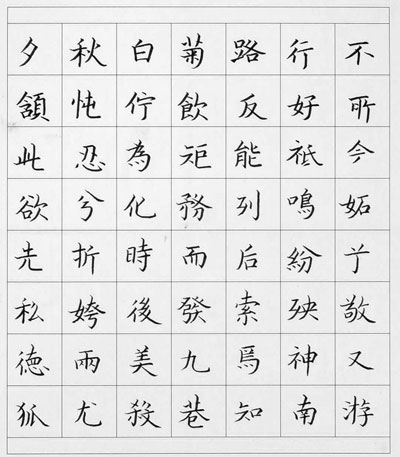 不所今妬敬又游
行好祇鳴紛殃神南
路反能列后索焉知
菊飲矩務而發九巷
白佇為化時後美殺
秋忳忍兮折姱兩尤
夕頷此欲先私德狐